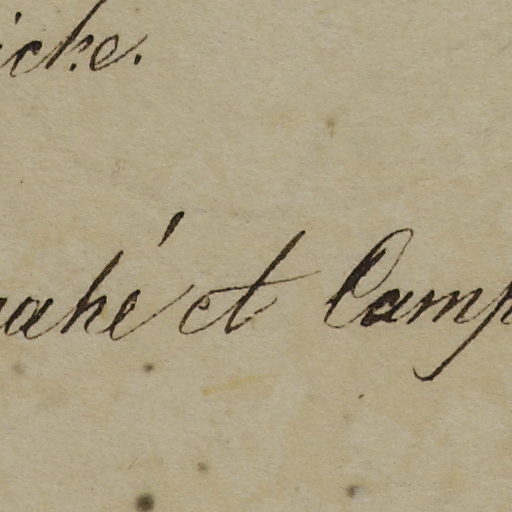 iche.
rahé et Camp